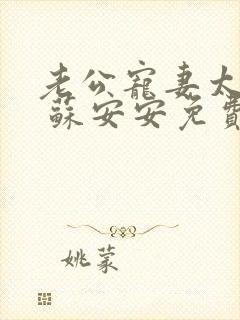 老公寵妻太
蘇安安免費
姚蒙